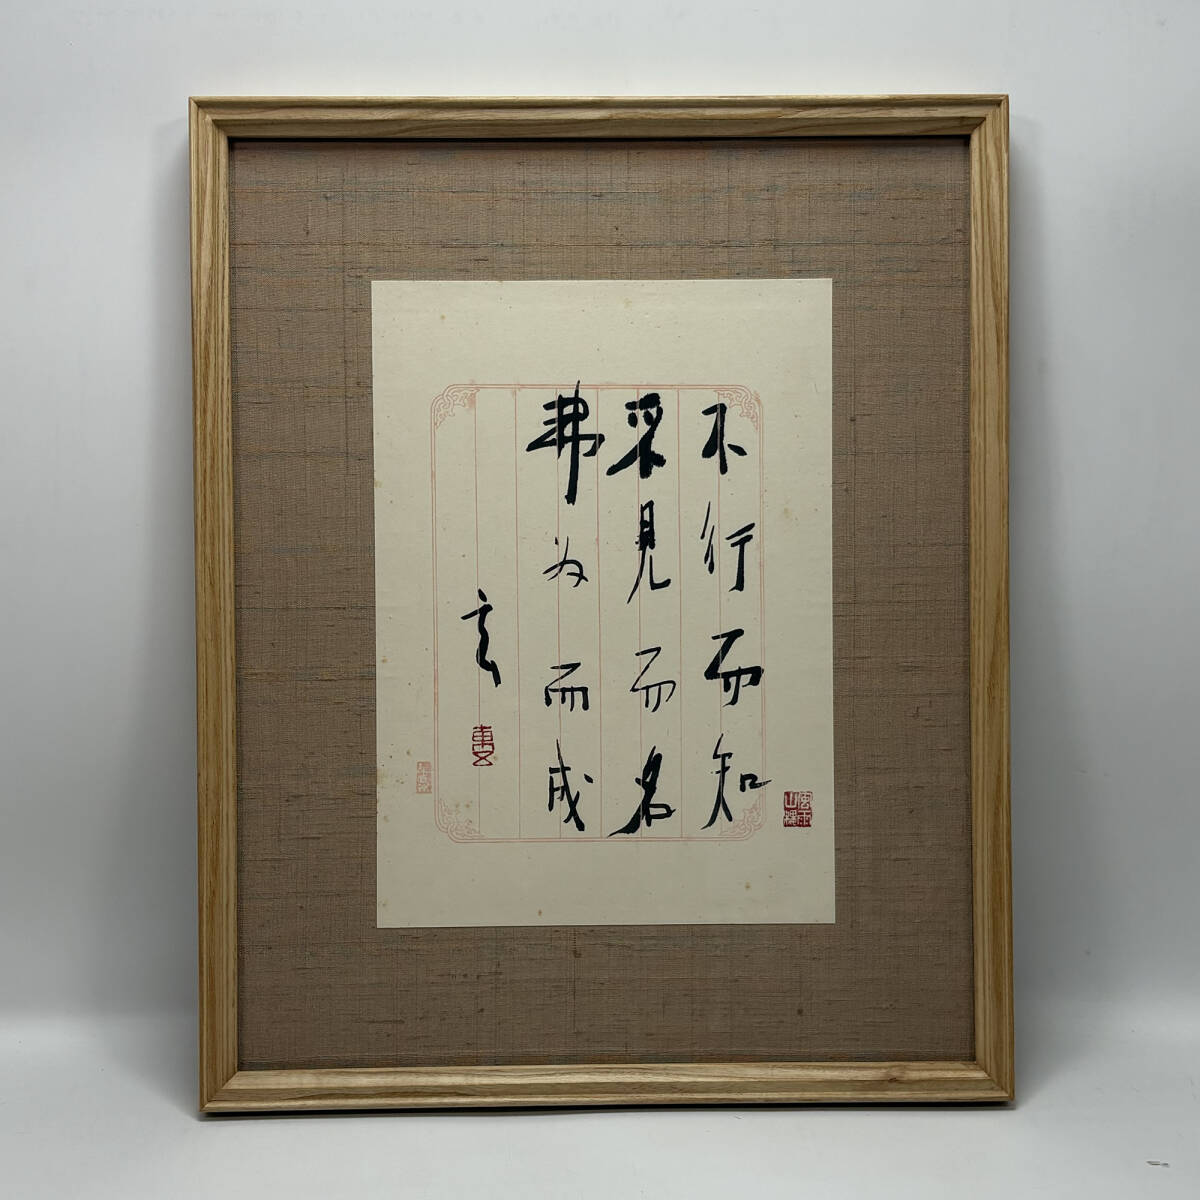 不行而知
見而名
弗为而成